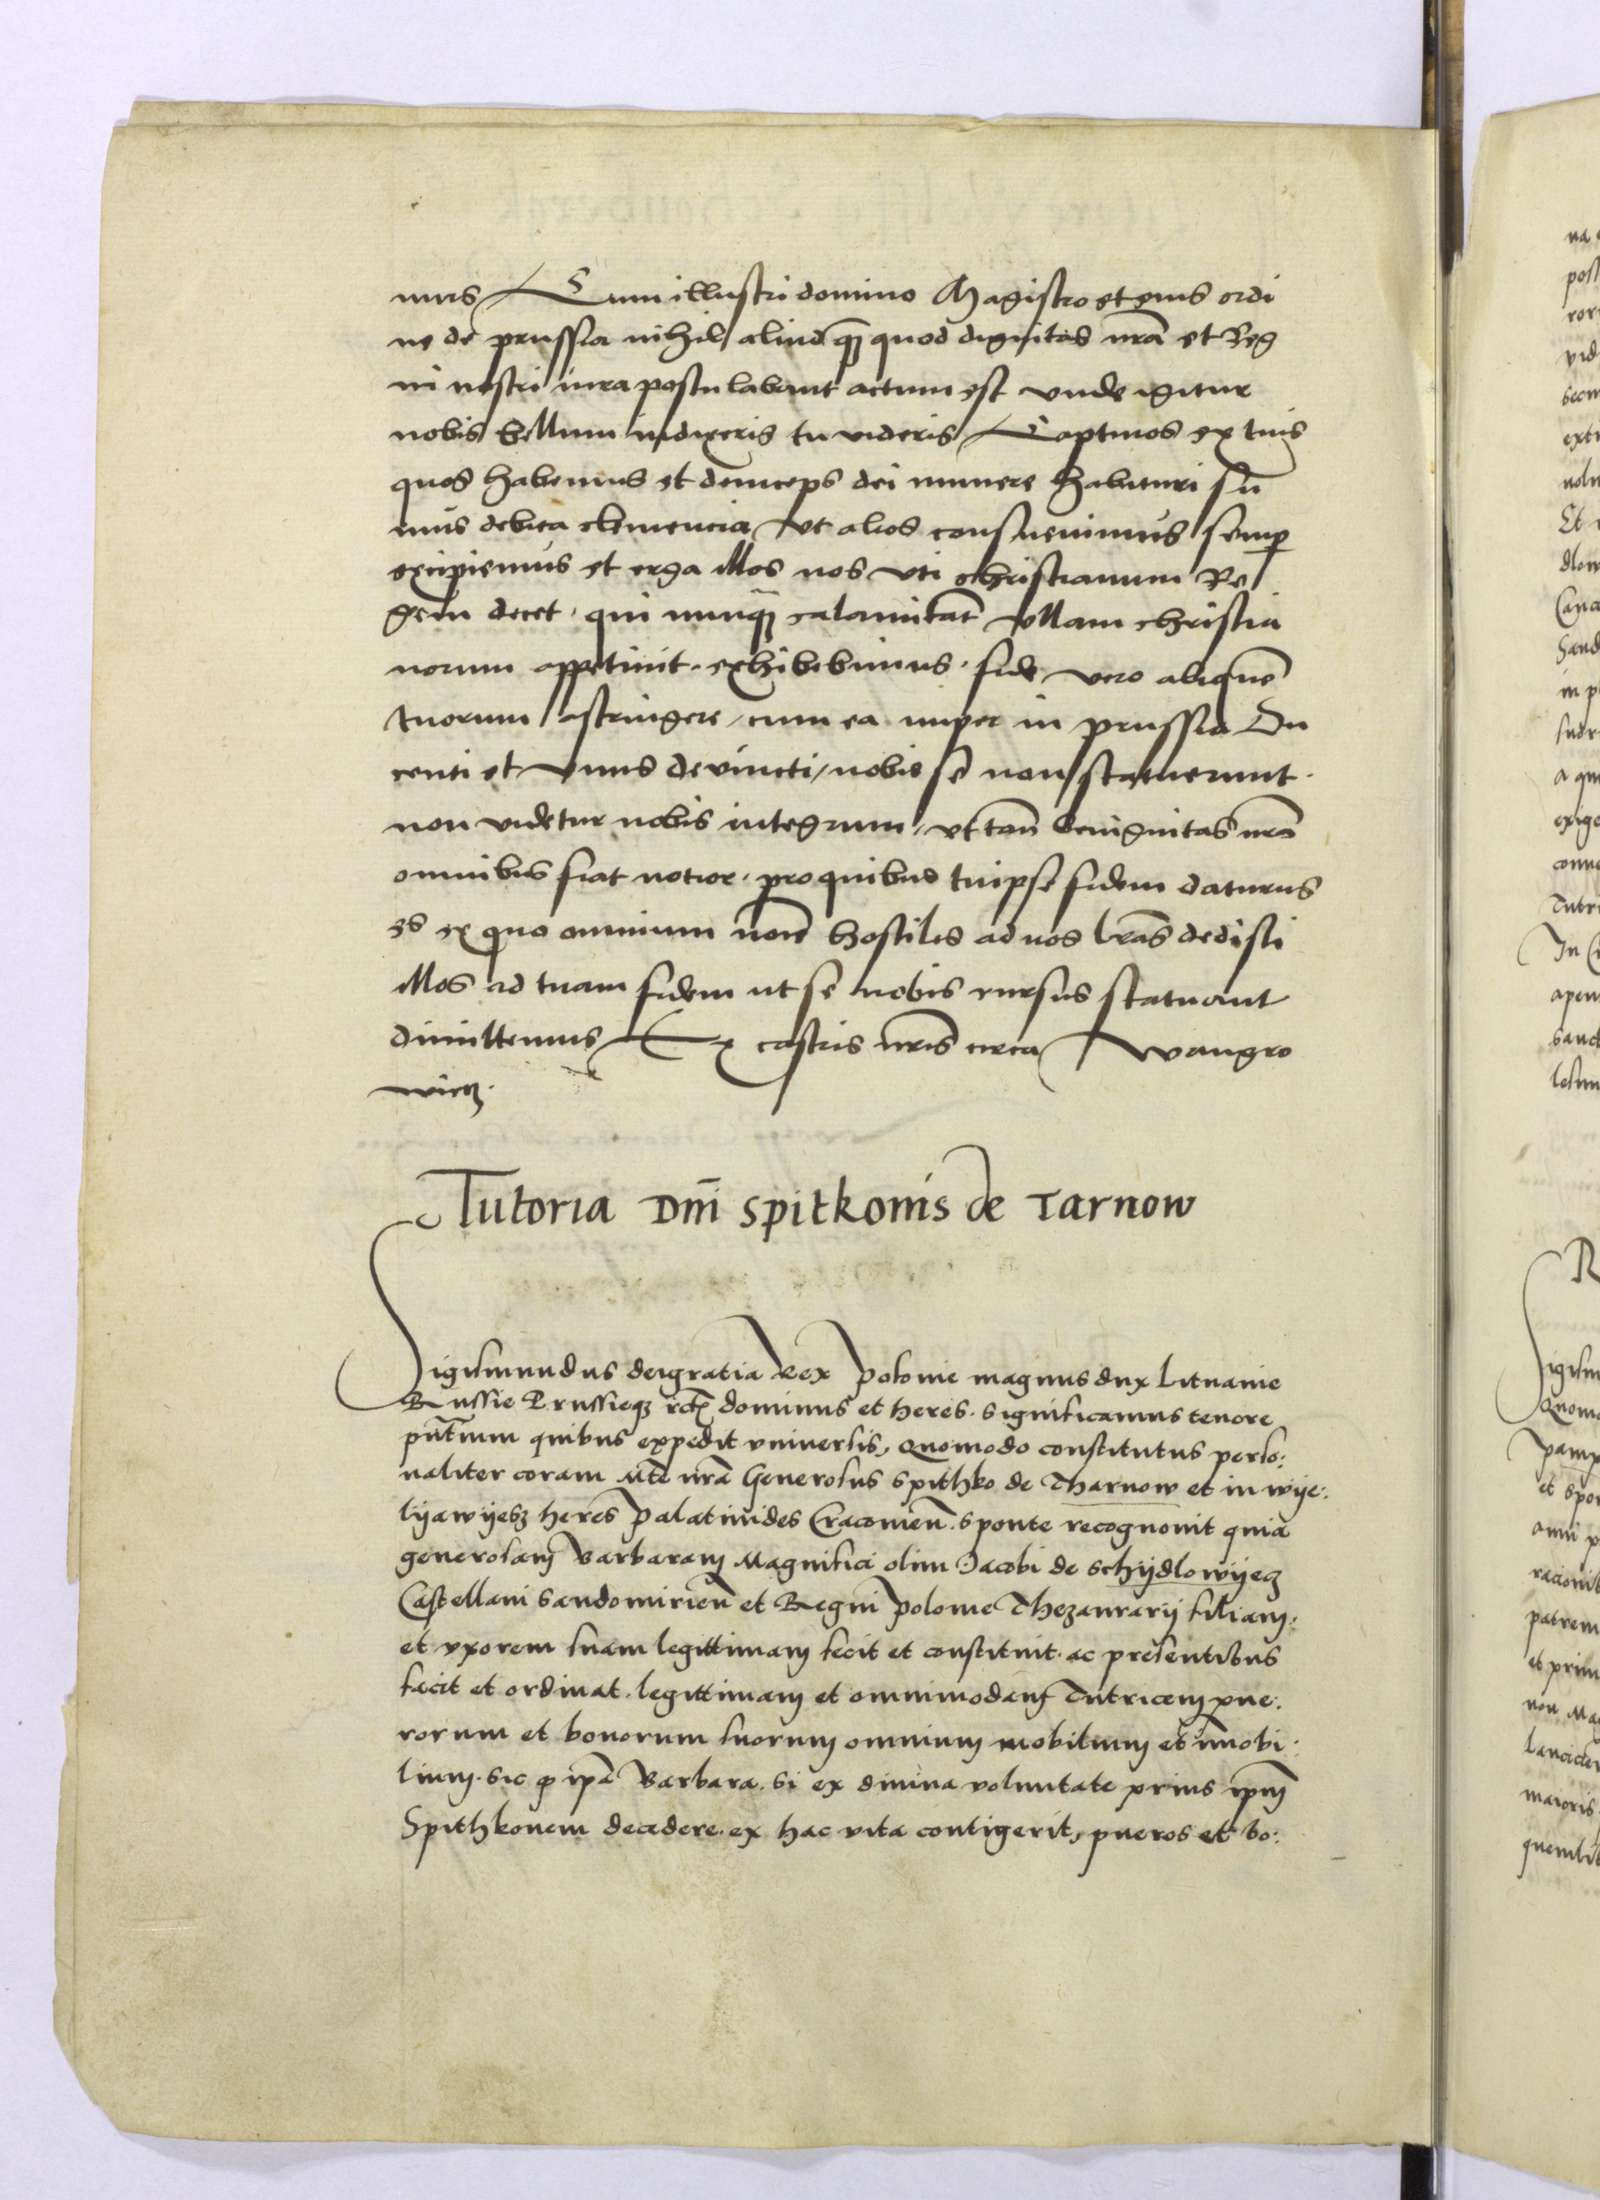 mus Cum illustri domino Magistro et eius ordi
ne de prussia nihil aliud qȝ quod dignitas nrā et Reg
ni nostri iura postulabant actum est vnde igitur
nobis bellum indixeris tu videris Captiuos ex tuis
quos habemus et deinceps dei munere habituri su
mus debita clemencia vt alios consueuimus semp
excipiemus et erga illos nos vti christianum Re
gem decet. qui nunqȝ calamitatē vllam christia
norum appetiuit. exhibebimus. fide vero aliquem
tuorum astringere, cum ea nuper in prussia Du
centi et vnus deuincti, nobis se non statuerunt.
non videtur nobis integrum, vt tamē benignitas nrā
omnibus fiat notior. pro quibus tuipse fidem daturus
es ex quo omnium noīe hostiles ad nos lrās dedisti
illos ad tuam fidem ut se nobis rursus statuant
dimittemus Ex castris nrīs circa Wangro
wiecz.
Tutoria Dnī Spitkonis de Tarnow
Sigismundus deigratia Rex Polonie magnus dux Lituanie
Russie Prussieqȝ rctȝ dominus et heres. Significamus tenore
pntium quibus expedit vniversis, Quomodo constitutus perso:
naliter coram Mte nrā Generosus Spithko de Tharnow et in wye:
lyawyesz heres Palatinides Cracouien. sponte recognouit quia
generosam Barbaram Magnifici olim Jacobi de Schydlowyecz
Castellani Sandomirien et Regni Polonie Thezaurarij filiam:
et vxorem suam legittimam fecit et constituit. ac presentibus
facit et ordinat. legittimam et omnimodam Tutricem pue:
rorum et bonorum suorum omnium mobilium et imobi:
lium. sic ꝙ ipā Barbara. si ex diuina voluntate prius ipm̄
Spithkonem decedere. ex hac vita contigerit, pueros et bo: